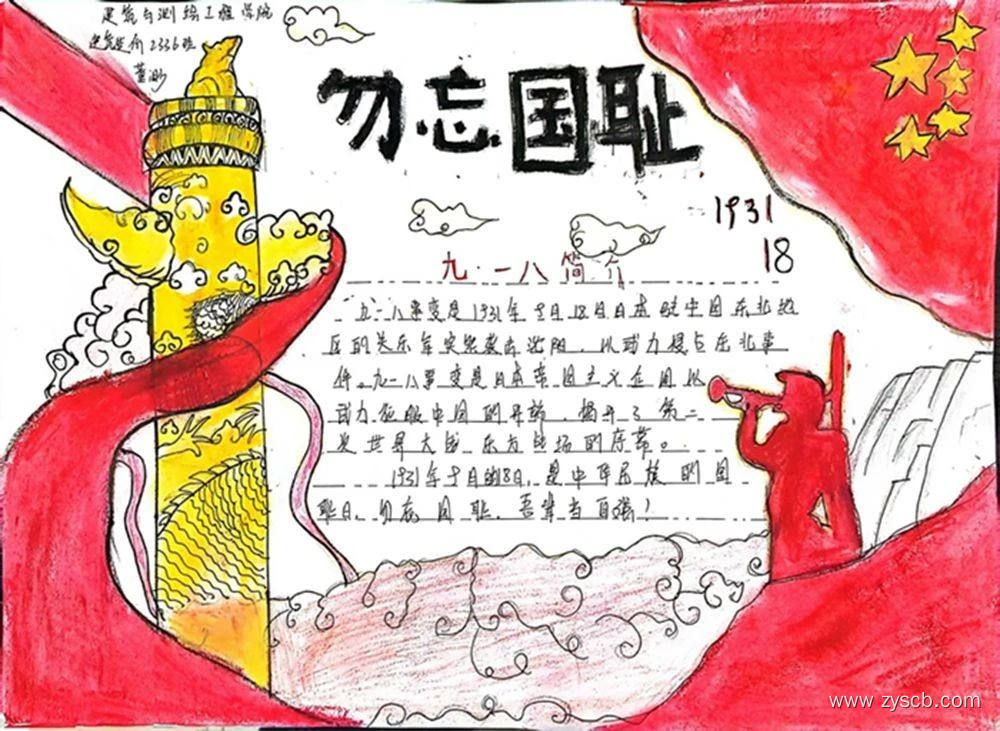 建筑与测绘工程学院
建筑造价2336班
勿忘国耻
1931
18
九·一八简介
九一八事变是1931年9月18日日本驻中国东北地
区的关东军突然袭击沈阳，以武力侵占东北事
件。九一八事变是日本帝国主义企图以
武力征服中国的开端，揭开了第二
次世界大战东方战场的序幕。
1931年9月的18日，是中华民族的国
耻日，勿忘国耻，吾辈当自强！
www.zyscb.com